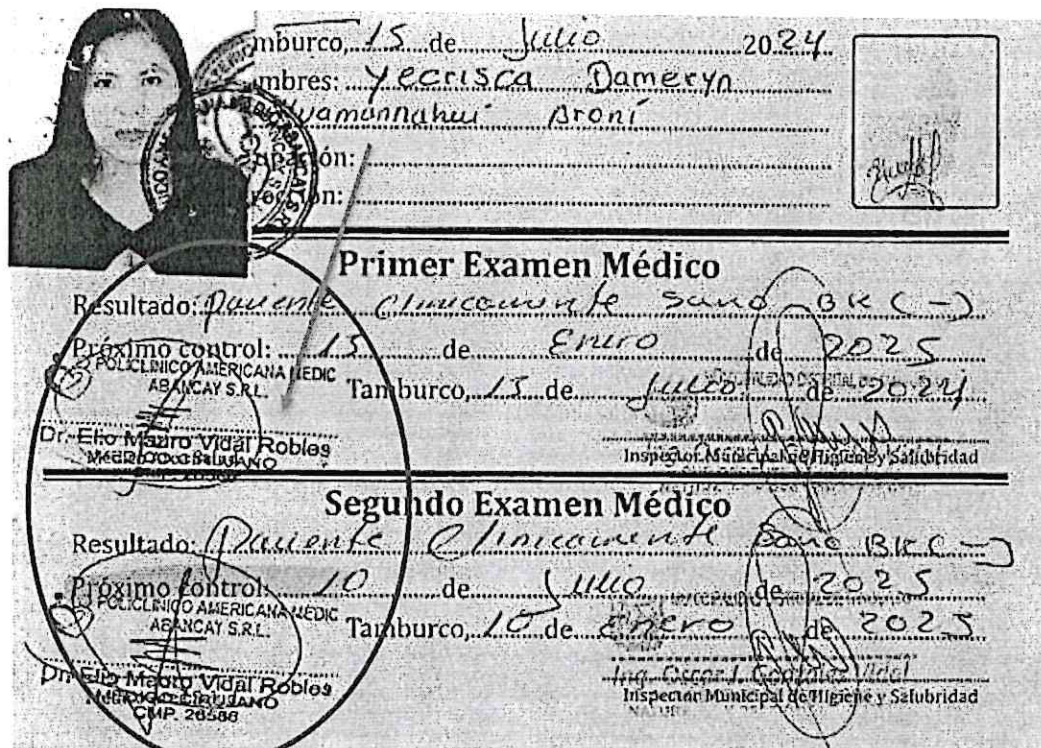 mburco, 15 de Julio 2024
mbres: Yecrisca Dameryn
Huamannahui Aroni
upación:
rección:
Primer Examen Médico
Resultado: Paciente Clinicamente Sano BK (-)
Próximo control: 15 de Enero de 2025
POLICLINICO AMERICANA MEDIC
ABANCAY S.R.L.
Tamburco, 15 de Julio de 2024
Dr. Elio Mauro Vidal Robles
MEDICO CIRUJANO
Inspector Municipal de Higiene y Salubridad
Segundo Examen Médico
Resultado: Paciente Clinicamente Sano BK (-)
Próximo control: 10 de Julio de 2025
POLICLINICO AMERICANA MEDIC
ABANCAY S.R.L.
Tamburco, 10 de Enero de 2025
Dr. Elio Mauro Vidal Robles
MEDICO CIRUJANO
CMP. 26586
Ing. Oscar I. Gonzales Vidal
Inspector Municipal de Higiene y Salubridad